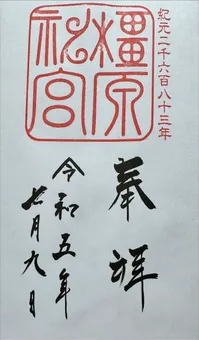 紀元二千六百八十三年
橿原神宮
奉拝
令和五年
七月九日